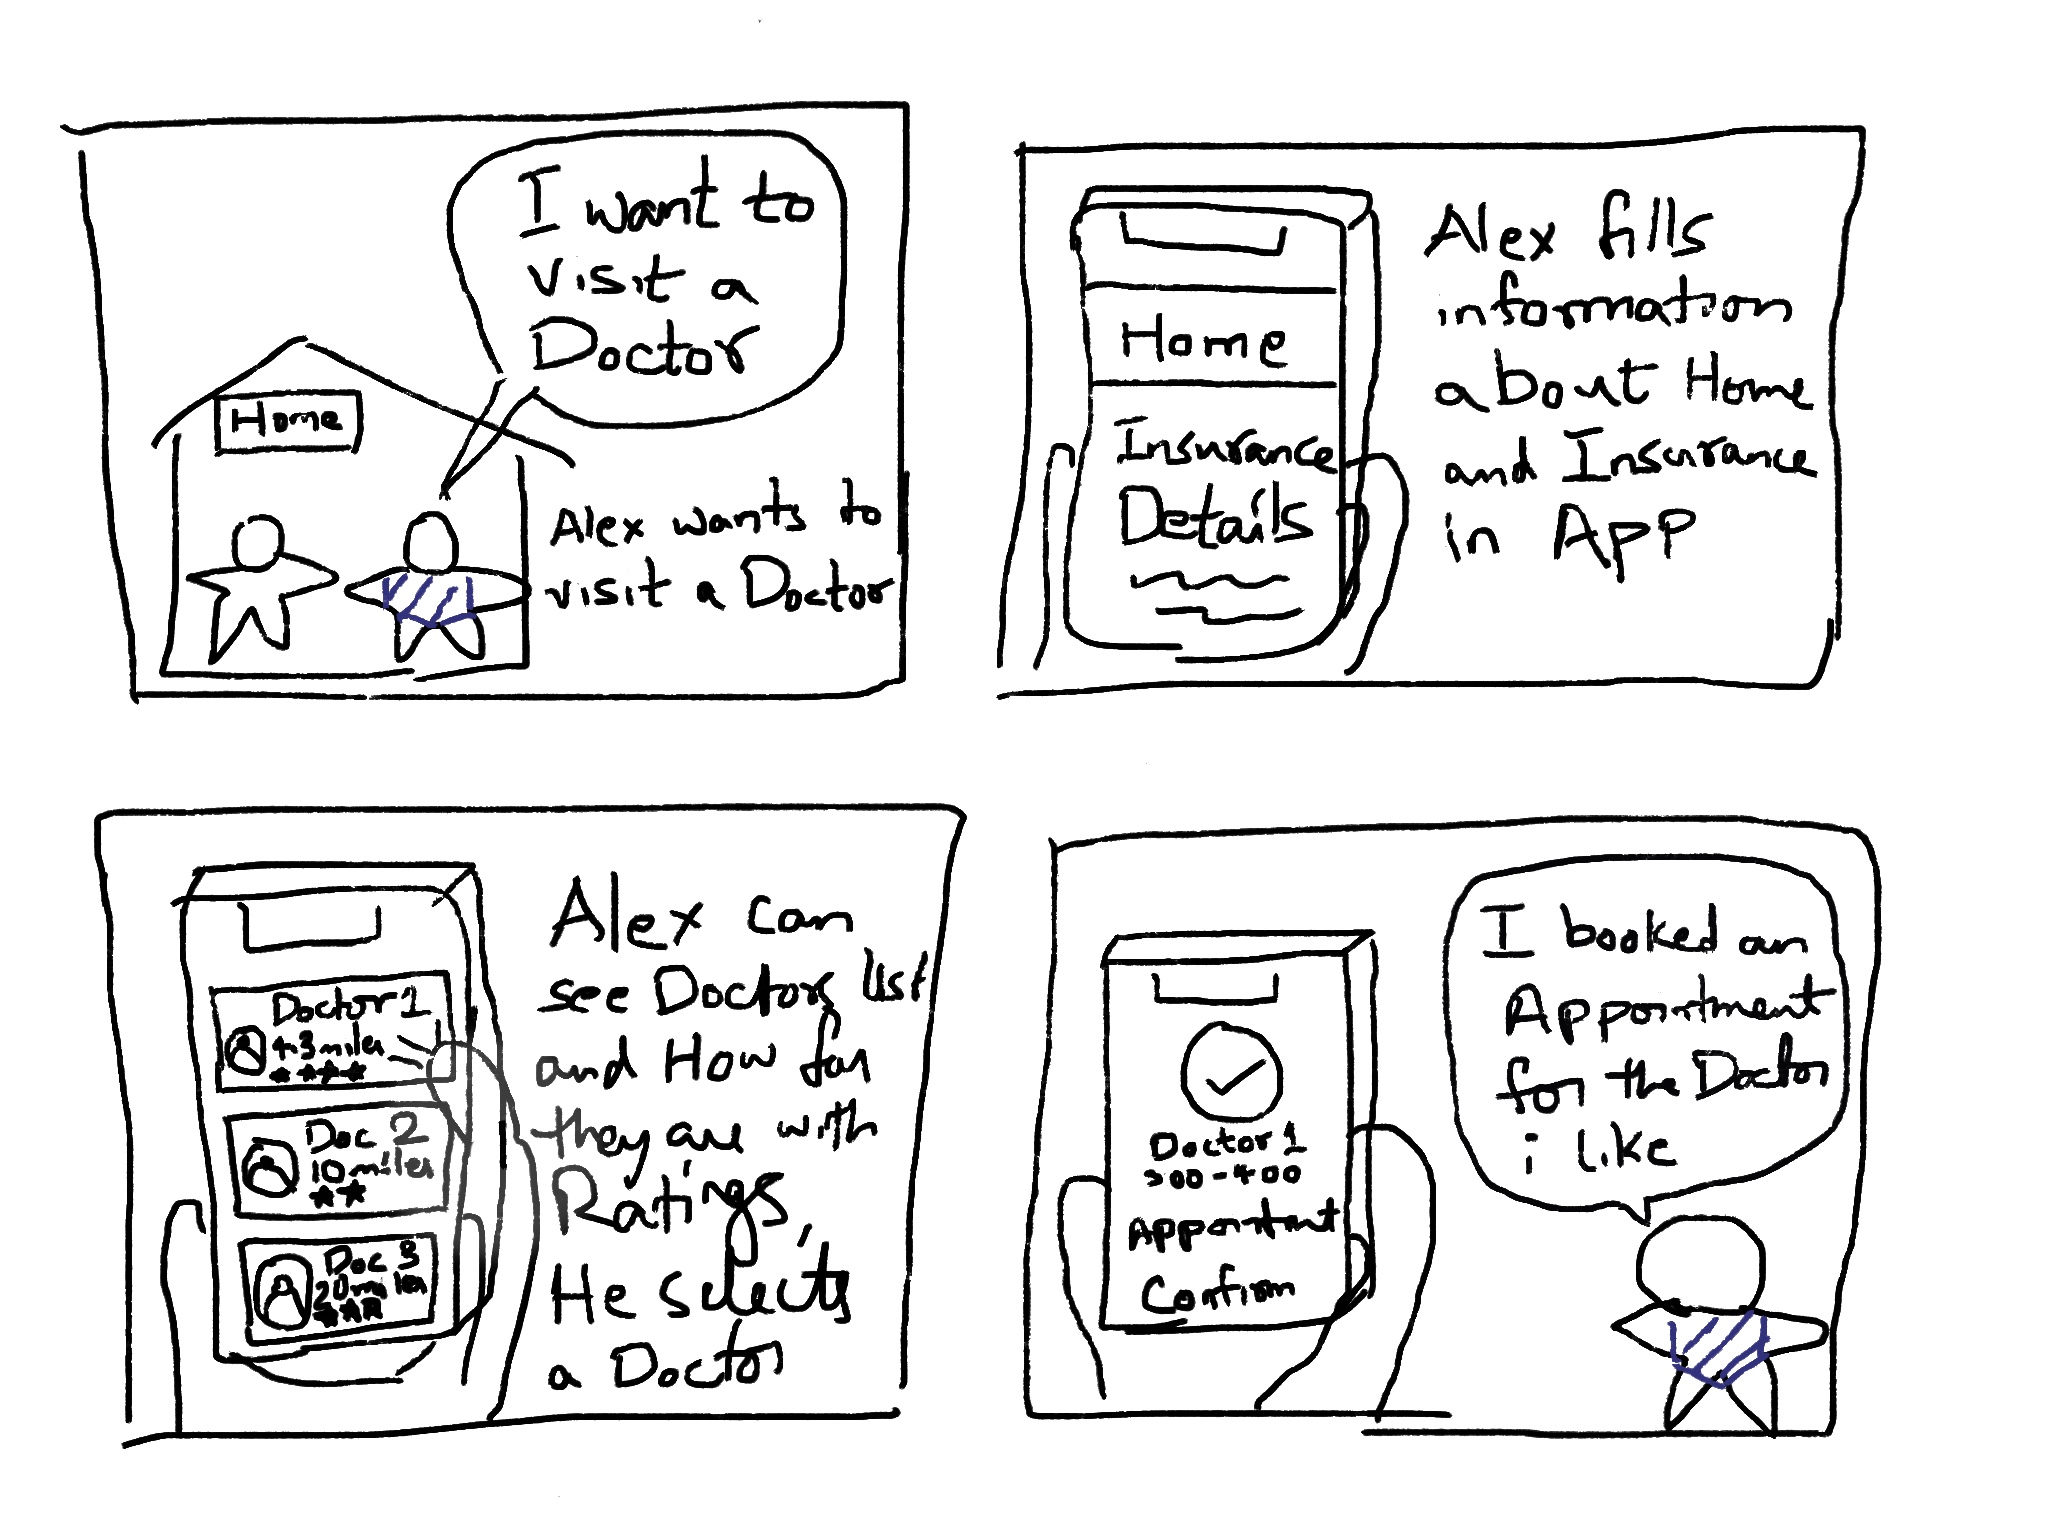 I want to
visit a
Doctor
Home
Alex wants to
visit a Doctor
Home
Insurance
Details
Alex fills
information
about Home
and Insurance
in App
Doctor 1
4.3 miles
Doc 2
10 miles
Doc 3
20 miles
Alex can
see Doctors list
and How far
they are with
Ratings,
He selects
a Doctor
Doctor 1
300-400
Appointmnt
Confirm
I booked an
Appointment
for the Doctor
i like